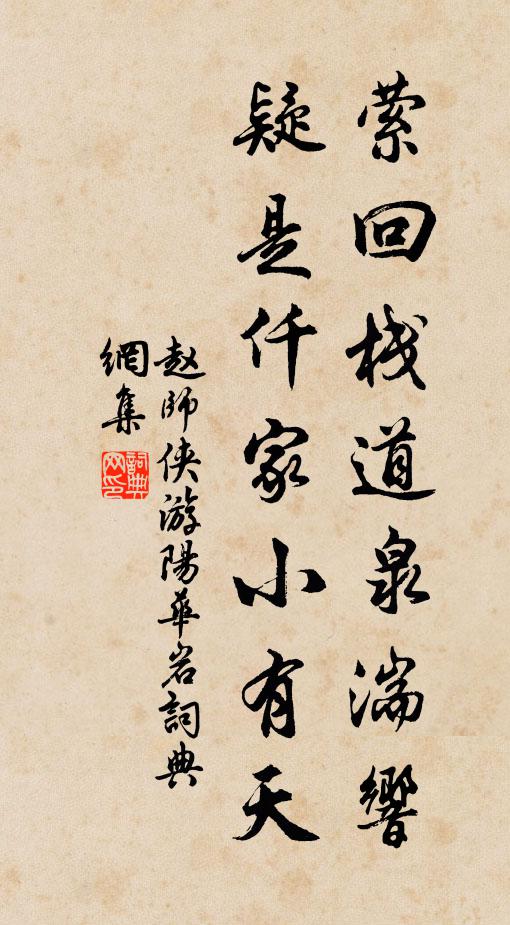 萦回栈道泉湍響
疑是仟家小有天
赵師侠游陽華岩詞典
網集
詞典
网印